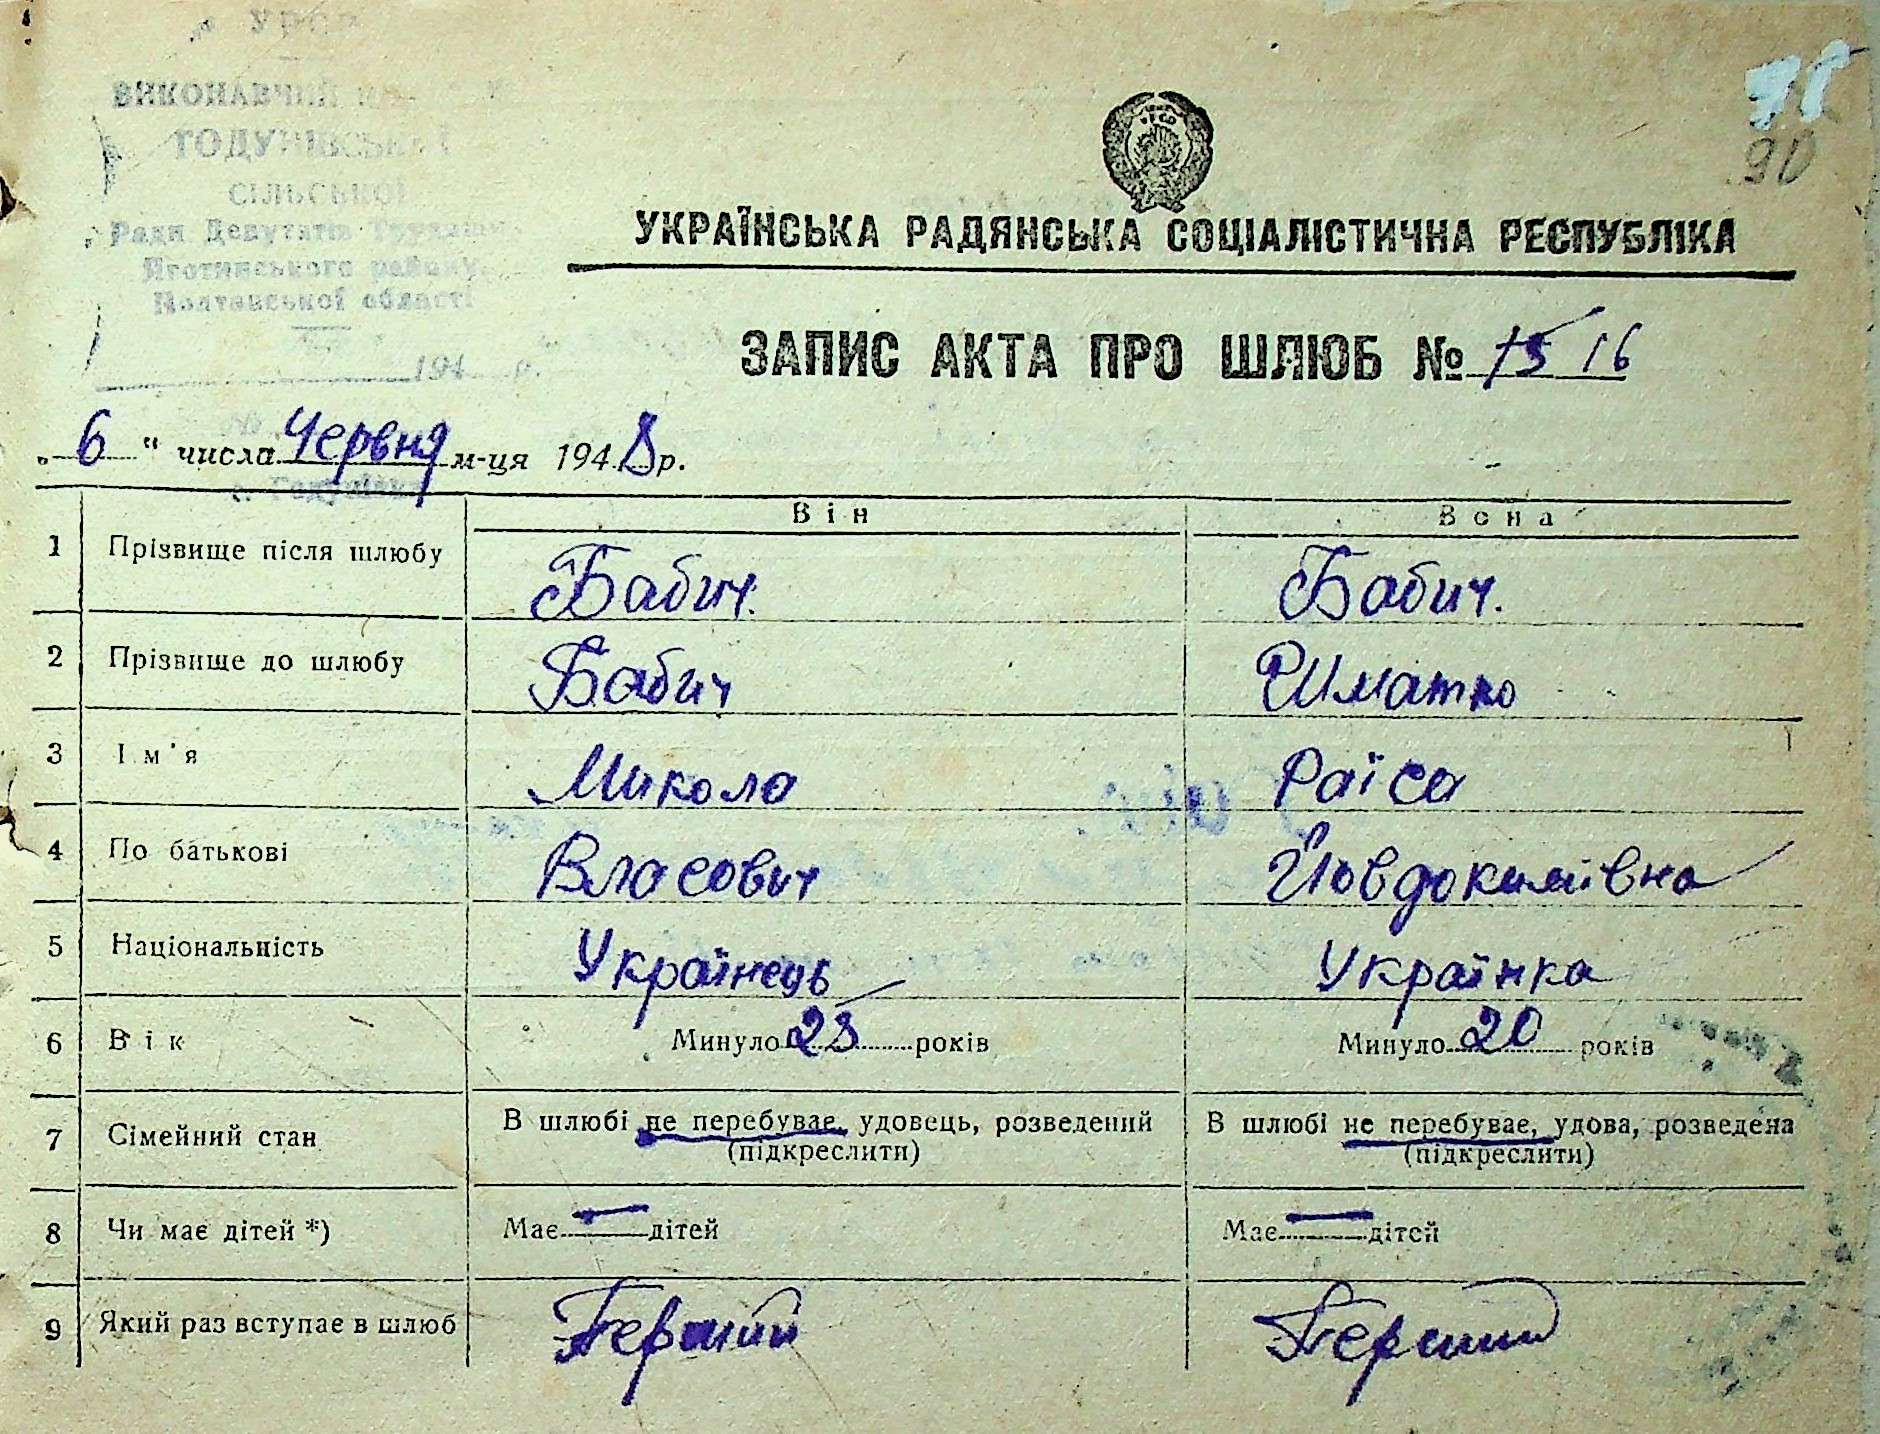 УРСР
ВИКОНАВЧИЙ
ГОДУНІВСЬКОЇ
СІЛЬСЬКОЇ
Ради Депутатів Трудящих
Яготинського району
Полтавської області
194 р.
с. Годунівка
90
УКРАЇНСЬКА РАДЯНСЬКА СОЦІАЛІСТИЧНА РЕСПУБЛІКА
ЗАПИС АКТА ПРО ШЛЮБ № 15 16
„6“ числа Червня м-ця 1948 р.
Він Вона
1 Прізвище після шлюбу Бабич. Бабич.
2 Прізвище до шлюбу Бабич Шматко
3 Ім'я Микола Раїса
4 По батькові Власович Йовдокимівна
5 Національність Українець Українка
6 Вік Минуло 23 років Минуло 20 років
7 Сімейний стан В шлюбі не перебуває, удовець, розведений В шлюбі не перебуває, удова, розведена
(підкреслити) (підкреслити)
8 Чи має дітей *) Має — дітей Має — дітей
9 Який раз вступає в шлюб Перший Перший